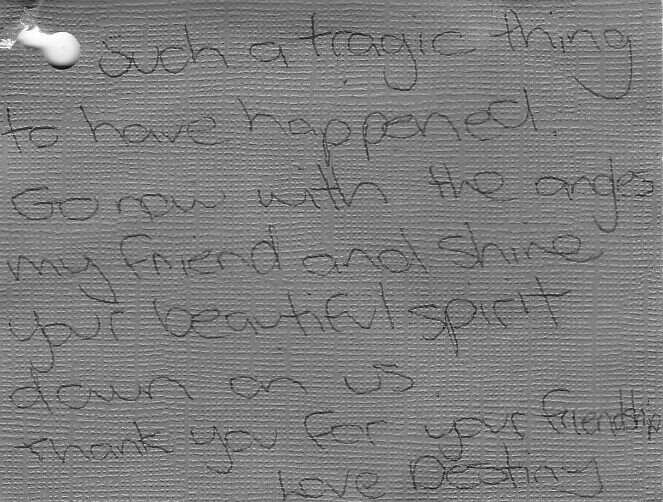 Such a tragic thing
to have happened.
Go now with the angles
my friend and shine
your beautiful spirit
down on us.
Thank you for your friendship
Love Destiny